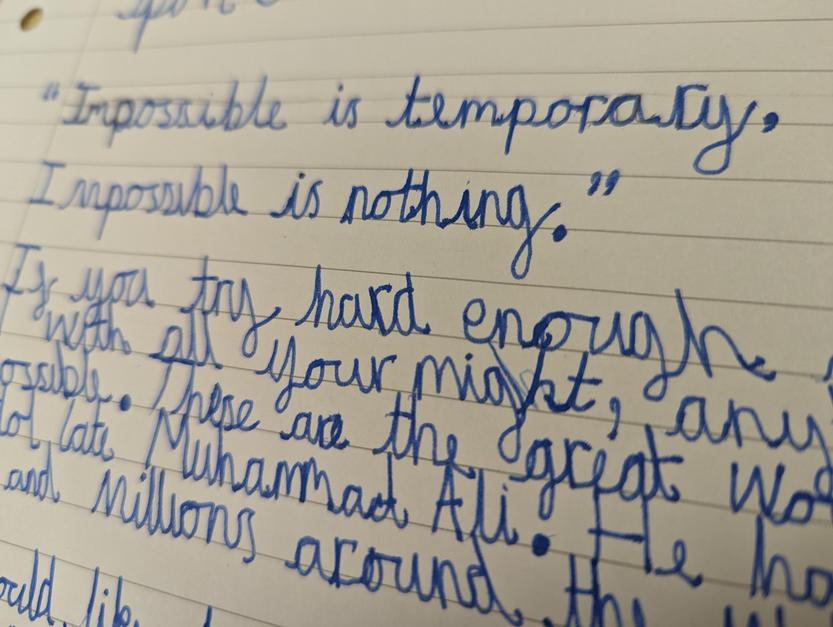 "Impossible is temporary,
Impossible is nothing."
If you try hard enough
with all your might, any
ossible. These are the great wo
lot, late Muhammad Ali. He ha
and Millions around the w
ould like